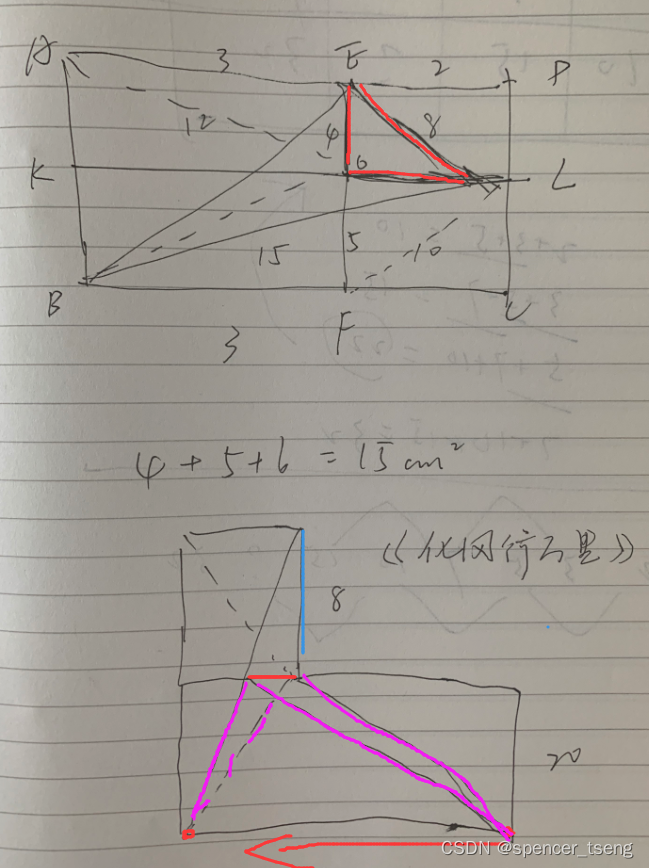 A 3 E 2 D
12 4 8
K 6 L
15 5 10
B F C
3
4 + 5 + 6 = 15 cm²
8
20
CSDN @spencer_tseng